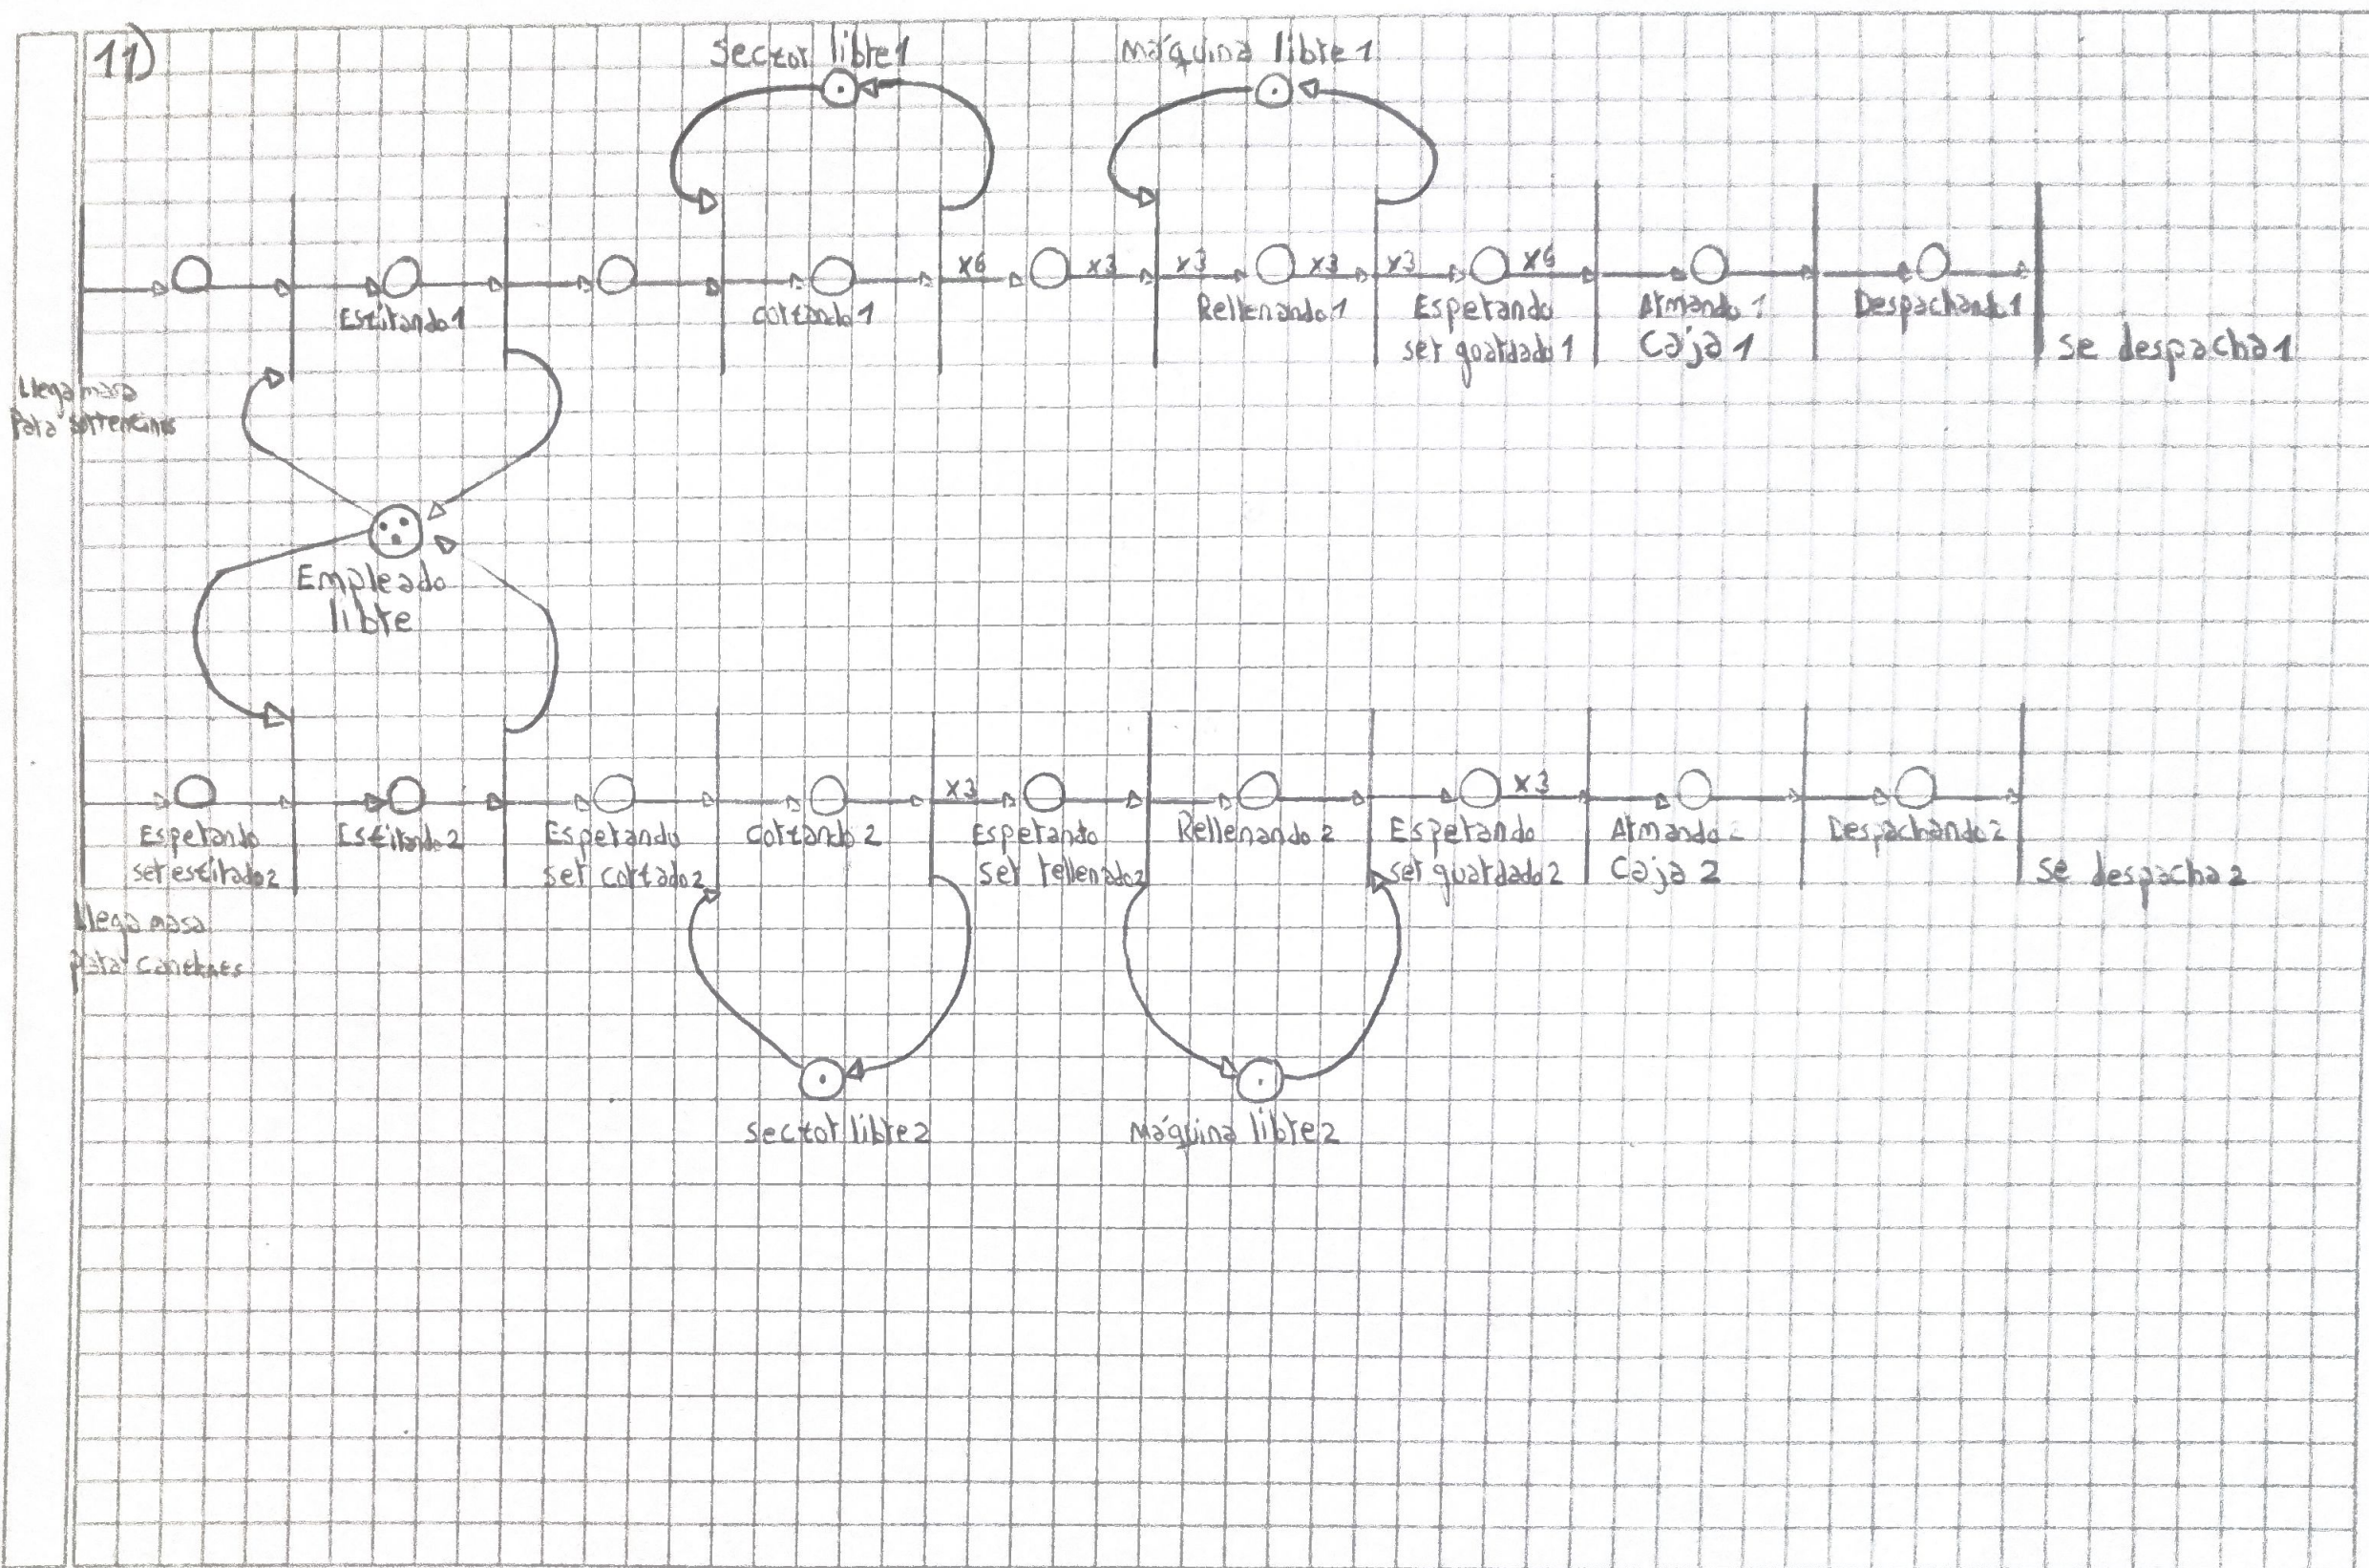 11)
sector libre1
máquina libre1
x6 x3 x3 x3 x3 x6
Estirando1
cortando1
Rellenando1
Esperando
ser guardado1
Armando
Caja1
Despachando1
se despacha1
Llega masa
Para sorrentinos
Empleado
libre
x3 x3
Esperando
ser estirado2
Estirando2
Esperando
ser cortado2
cortando2
Esperando
ser rellenado2
Rellenando2
Esperando
ser guardado2
Armando
Caja2
Despachando2
se despacha2
Llega masa
para
sector libre2
máquina libre2